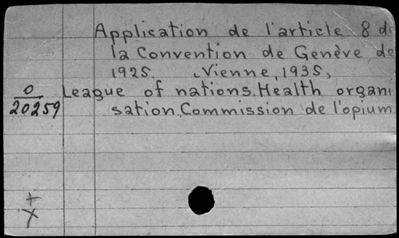 Application de l'article 8 de
la Convention de Genève de
1925. (Vienne, 1935)
O
20259
League of nations. Health organi
sation. Commission de l'opium
+
X